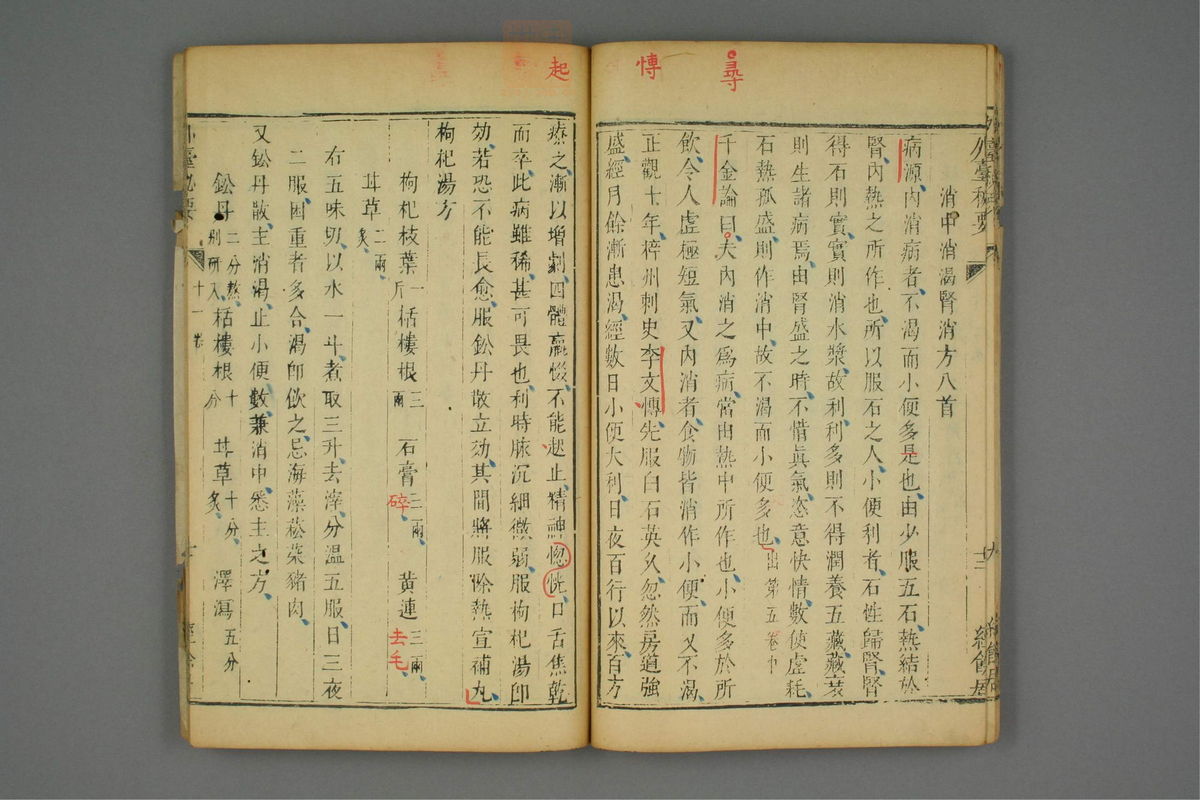 尋
慱
起
外臺秘要
消中消渴腎消方八首
病源内消病者不渴而小便多是也由少服五石熱結於
腎内熱之所作也所以服石之人小便利者石性歸腎腎
得石則實實則消水漿故利利多則不得潤養五藏藏衰
則生諸病焉由腎盛之時不惜眞氣恣意快情數使虛耗
石熱孤盛則作消中故不渴而小便多也出第五卷中
千金論曰夫内消之爲病當由熱中所作也小便多於所
飲令人虛極短氣又内消者食物皆消作小便而又不渴
正觀十年梓州刺史李文慱先服白石英久忽然房道強
盛經月餘漸患渴經數日小便大利日夜百行以來百方
療之漸以增劇四體羸惙不能起止精神惚恍口舌焦乾
而卒此病雖稀甚可畏也利時脉沉細微弱服枸杞湯卽
効若恐不能長愈服鈆丹散立効其間將服除熱宣補丸
枸杞湯方
枸杞枝葉一斤 栝樓根三兩 石膏三兩碎 黄連三兩去毛
甘草二兩炙
右五味切以水一斗煮取三升去滓分温五服日三夜
二服困重者多合渴卽飲之忌海藻菘菜猪肉
又鈆丹散主消渴止小便數兼消中悉主之方
鈆丹二分熬别研入 栝樓根十分 甘草十分炙 澤瀉五分
十一卷